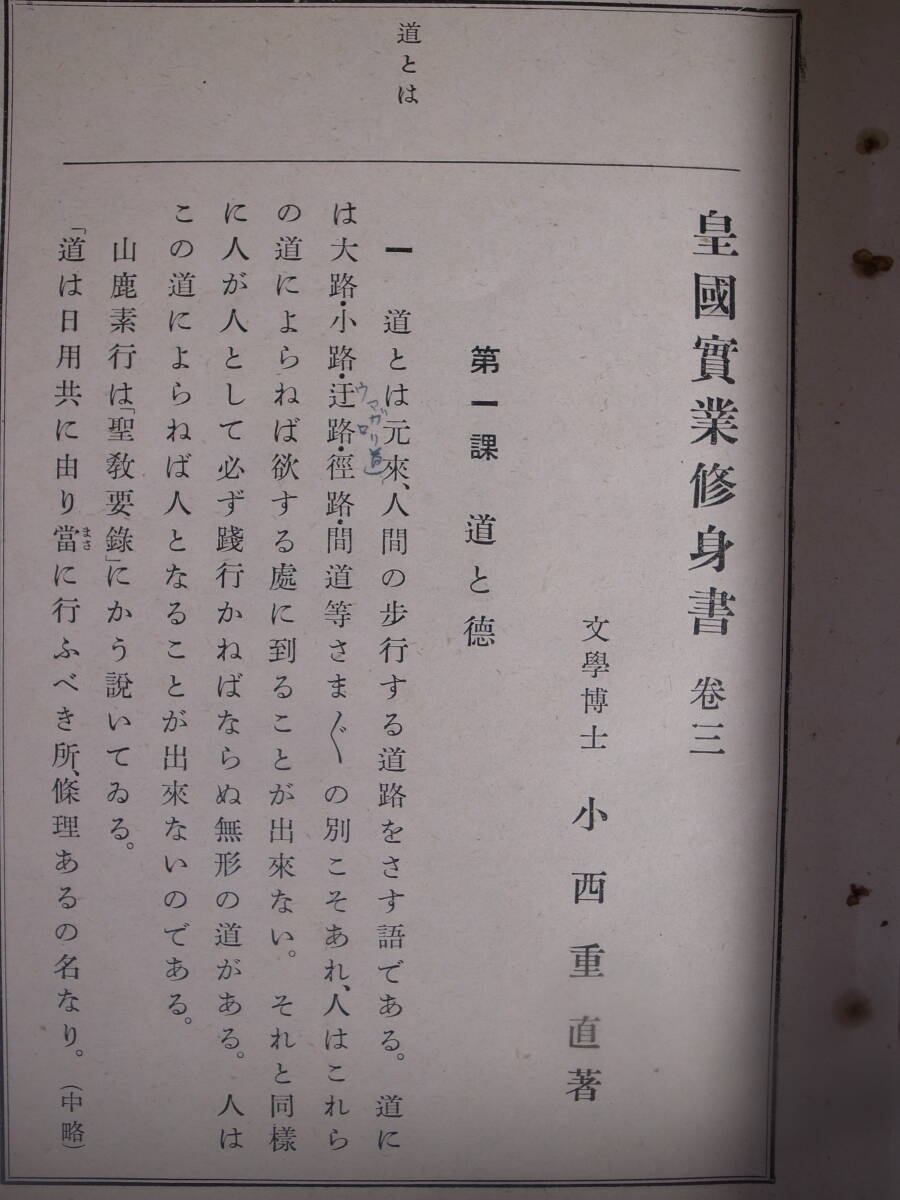 道とは
皇國實業修身書 卷三
文學博士 小西重直著
第一課 道と德
一 道とは元來、人間の步行する道路をさす語である。道に
は大路・小路・迂路・徑路・間道等さま〴〵の別こそあれ、人はこれら
の道によらねば欲する處に到ることが出來ない。それと同樣
に人が人として必ず踐行かねばならぬ無形の道がある。人は
この道によらねば人となることが出來ないのである。
山鹿素行は「聖敎要錄」にかう說いてゐる。
「道は日用共に由り當に行ふべき所、條理あるの名なり。(中略)
まさ
ウロ
マガリ道